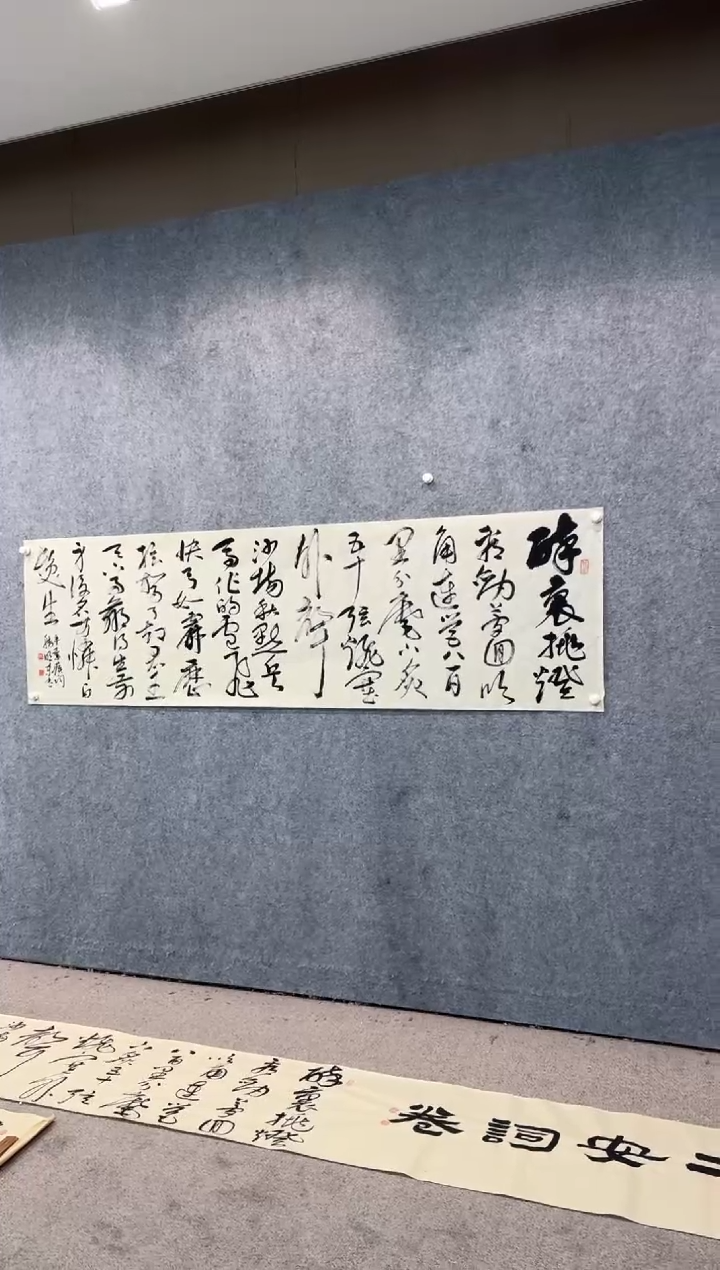 醉裏挑燈
看劍夢回吹
角連營八百
里分麾下炙
五十弦翻塞
外聲
沙場秋點兵
馬作的盧飛
快弓如霹靂
弦驚了却君王
天下事贏得生前
身後名可憐白
髮生
二安詞卷
醉裏挑燈
看劍夢回
吹角連營
八百里分麾
下炙五十弦
翻塞外
聲